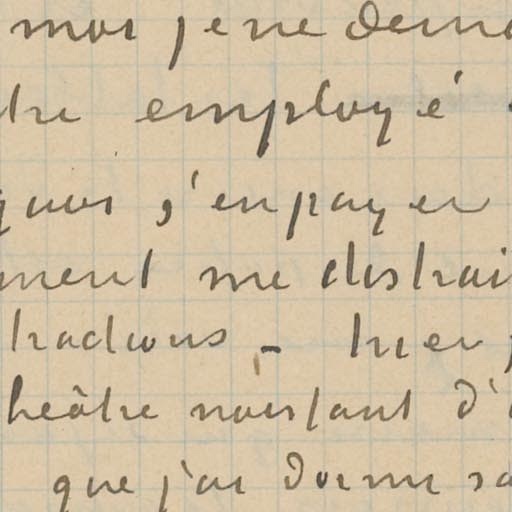 moi je ne dem
tre employé
quoi s'en payer
ment me distrai
tractions - hier
héâtre
que j'ai dormi sa